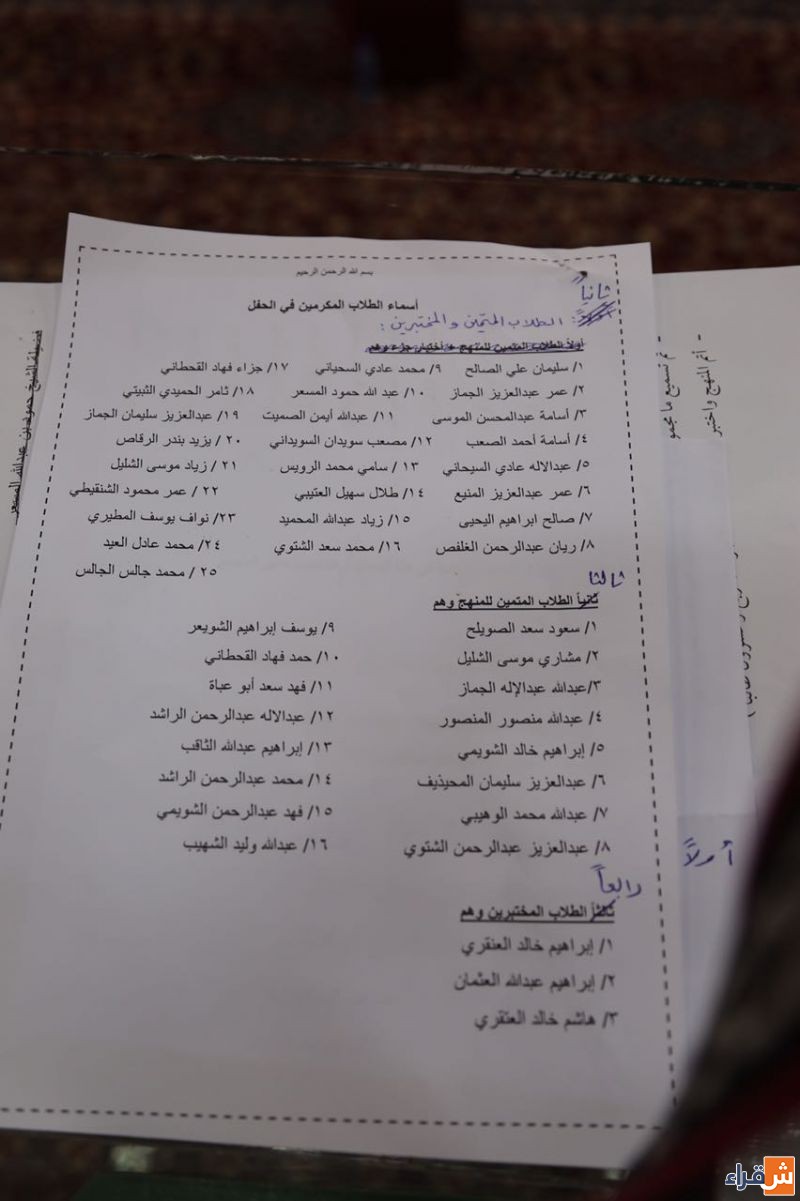 بسم الله الرحمن الرحيم
أسماء الطلاب المكرمين في الحفل
ثانياً
الطلاب المتمين والمختبرين :
أولاً الطلاب المتمين للمنهج + أختبار جزء وهم
١/ سليمان علي الصالح ٩/ محمد عادي السحياني ١٧/ جزاء فهاد القحطاني
٢/ عمر عبدالعزيز الجماز ١٠/ عبد الله حمود المسعر ١٨/ ثامر الحميدي الثبيتي
٣/ أسامة عبدالمحسن الموسى ١١/ عبدالله أيمن الصميت ١٩/ عبدالعزيز سليمان الجماز
٤/ أسامة أحمد الصعب ١٢/ مصعب سويدان السويداني ٢٠/ يزيد بندر الرقاص
٥/ عبدالاله عادي السيحاني ١٣/ سامي محمد الرويس ٢١/ زياد موسى الشليل
٦/ عمر عبدالعزيز المنيع ١٤/ طلال سهيل العتيبي ٢٢/ عمر محمود الشنقيطي
٧/ صالح ابراهيم اليحيى ١٥/ زياد عبدالله المحميد ٢٣/ نواف يوسف المطيري
٨/ ريان عبدالرحمن الغلفص ١٦/ محمد سعد الشتوي ٢٤/ محمد عادل العيد
٢٥/ محمد جالس الجالس
ثالثا
ثانياً الطلاب المتمين للمنهج وهم
١/ سعود سعد الصويلح ٩/ يوسف إبراهيم الشويعر
٢/ مشاري موسى الشليل ١٠/ حمد فهاد القحطاني
٣/عبدالله عبدالإله الجماز ١١/ فهد سعد أبو عباة
٤/ عبدالله منصور المنصور ١٢/ عبدالاله عبدالرحمن الراشد
٥/ إبراهيم خالد الشويمي ١٣/ إبراهيم عبدالله الثاقب
٦/ عبدالعزيز سليمان المحيذيف ١٤/ محمد عبدالرحمن الراشد
٧/ عبدالله محمد الوهيبي ١٥/ فهد عبدالرحمن الشويمي
٨/ عبدالعزيز عبدالرحمن الشتوي ١٦/ عبدالله وليد الشهيب
رابعاً
ثالثاً الطلاب المختبرين وهم
١/ إبراهيم خالد العنقري
٢/ إبراهيم عبدالله العثمان
٣/ هاشم خالد العنقري
- أتم المنهج واختبر
- تم تسميع ما مجمو
أولاً
فضيلة الشيخ حمود بن عبدالله المسعر
شقراء